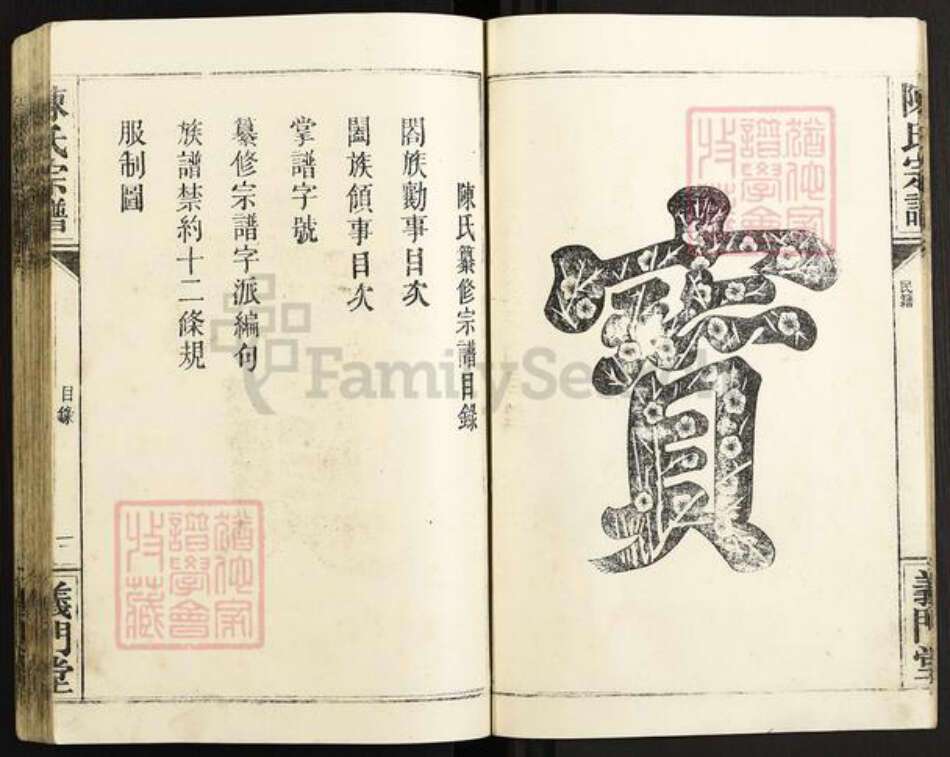 陳氏宗譜
民籍
義門堂
寶
陳氏纂修宗譜目錄
閤族勸事目次
闔族領事目次
掌譜字號
纂修宗譜字派編句
族譜禁約十二條規
服制圖
陳氏宗譜
目錄
義門堂
譜學會
收藏
FamilySearch